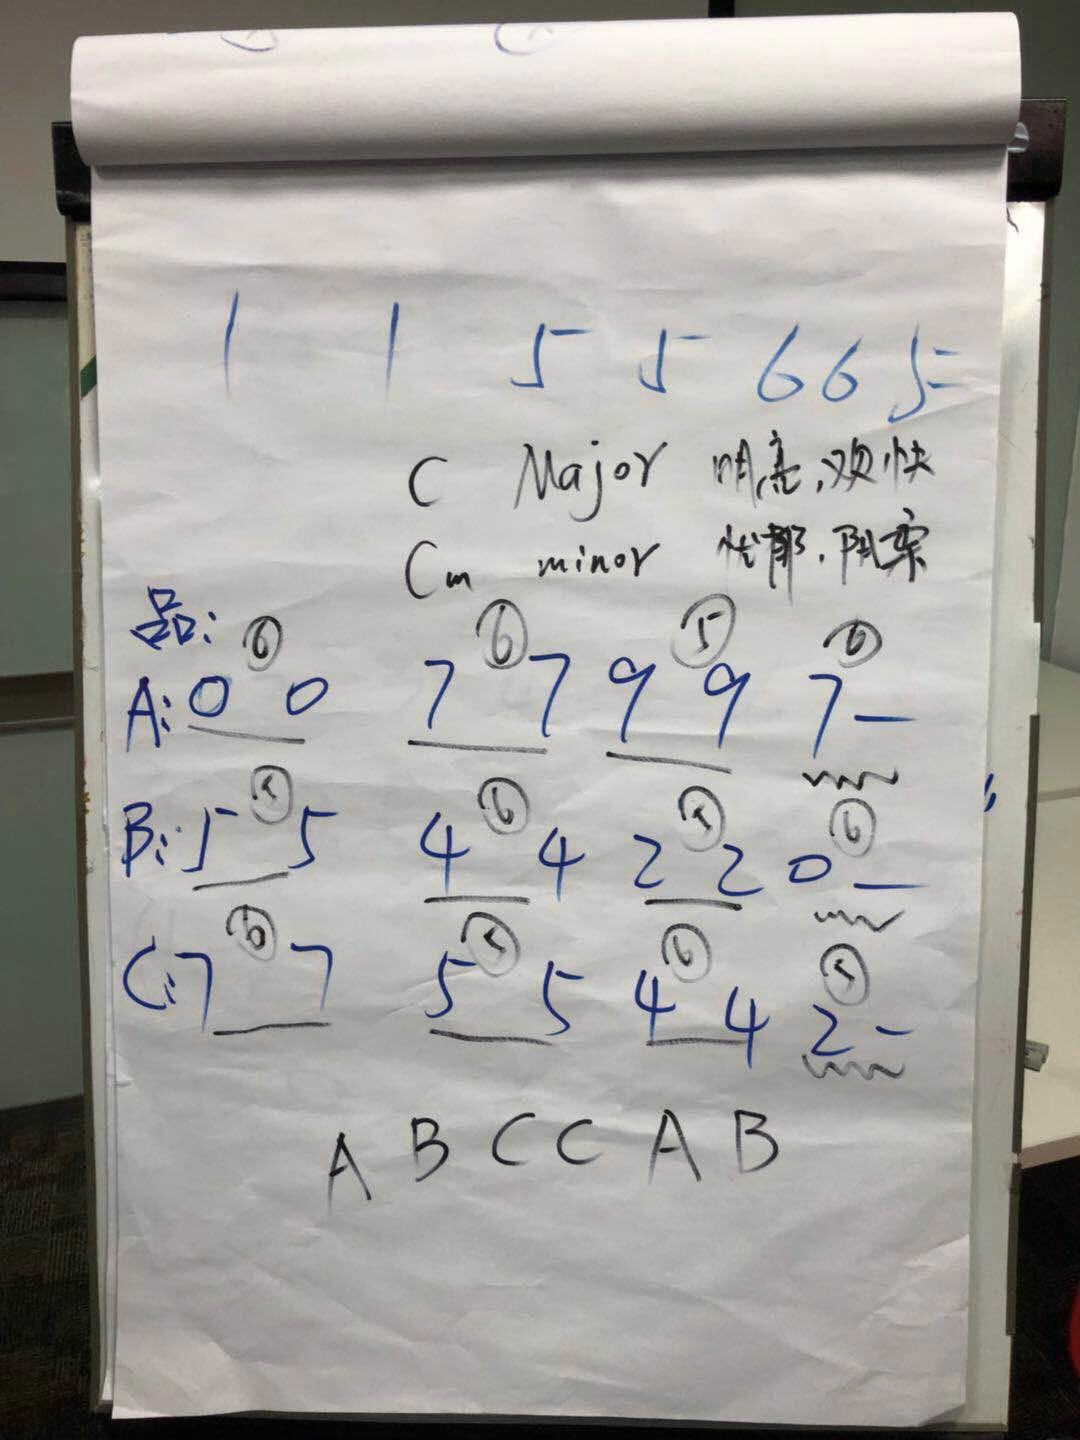 1 1 5 5 6 6 5-
C Major 明亮,欢快
Cm minor 忧郁,阴霾
品:
⑥ ⑥ ⑤ ⑥
A: 0 0 7 7 9 9 7-
⑤ ⑥ ⑤ ⑥
B: 5 5 4 4 2 2 0-
⑥ ⑤ ⑥ ⑤
C: 7 7 5 5 4 4 2-
A B C C A B